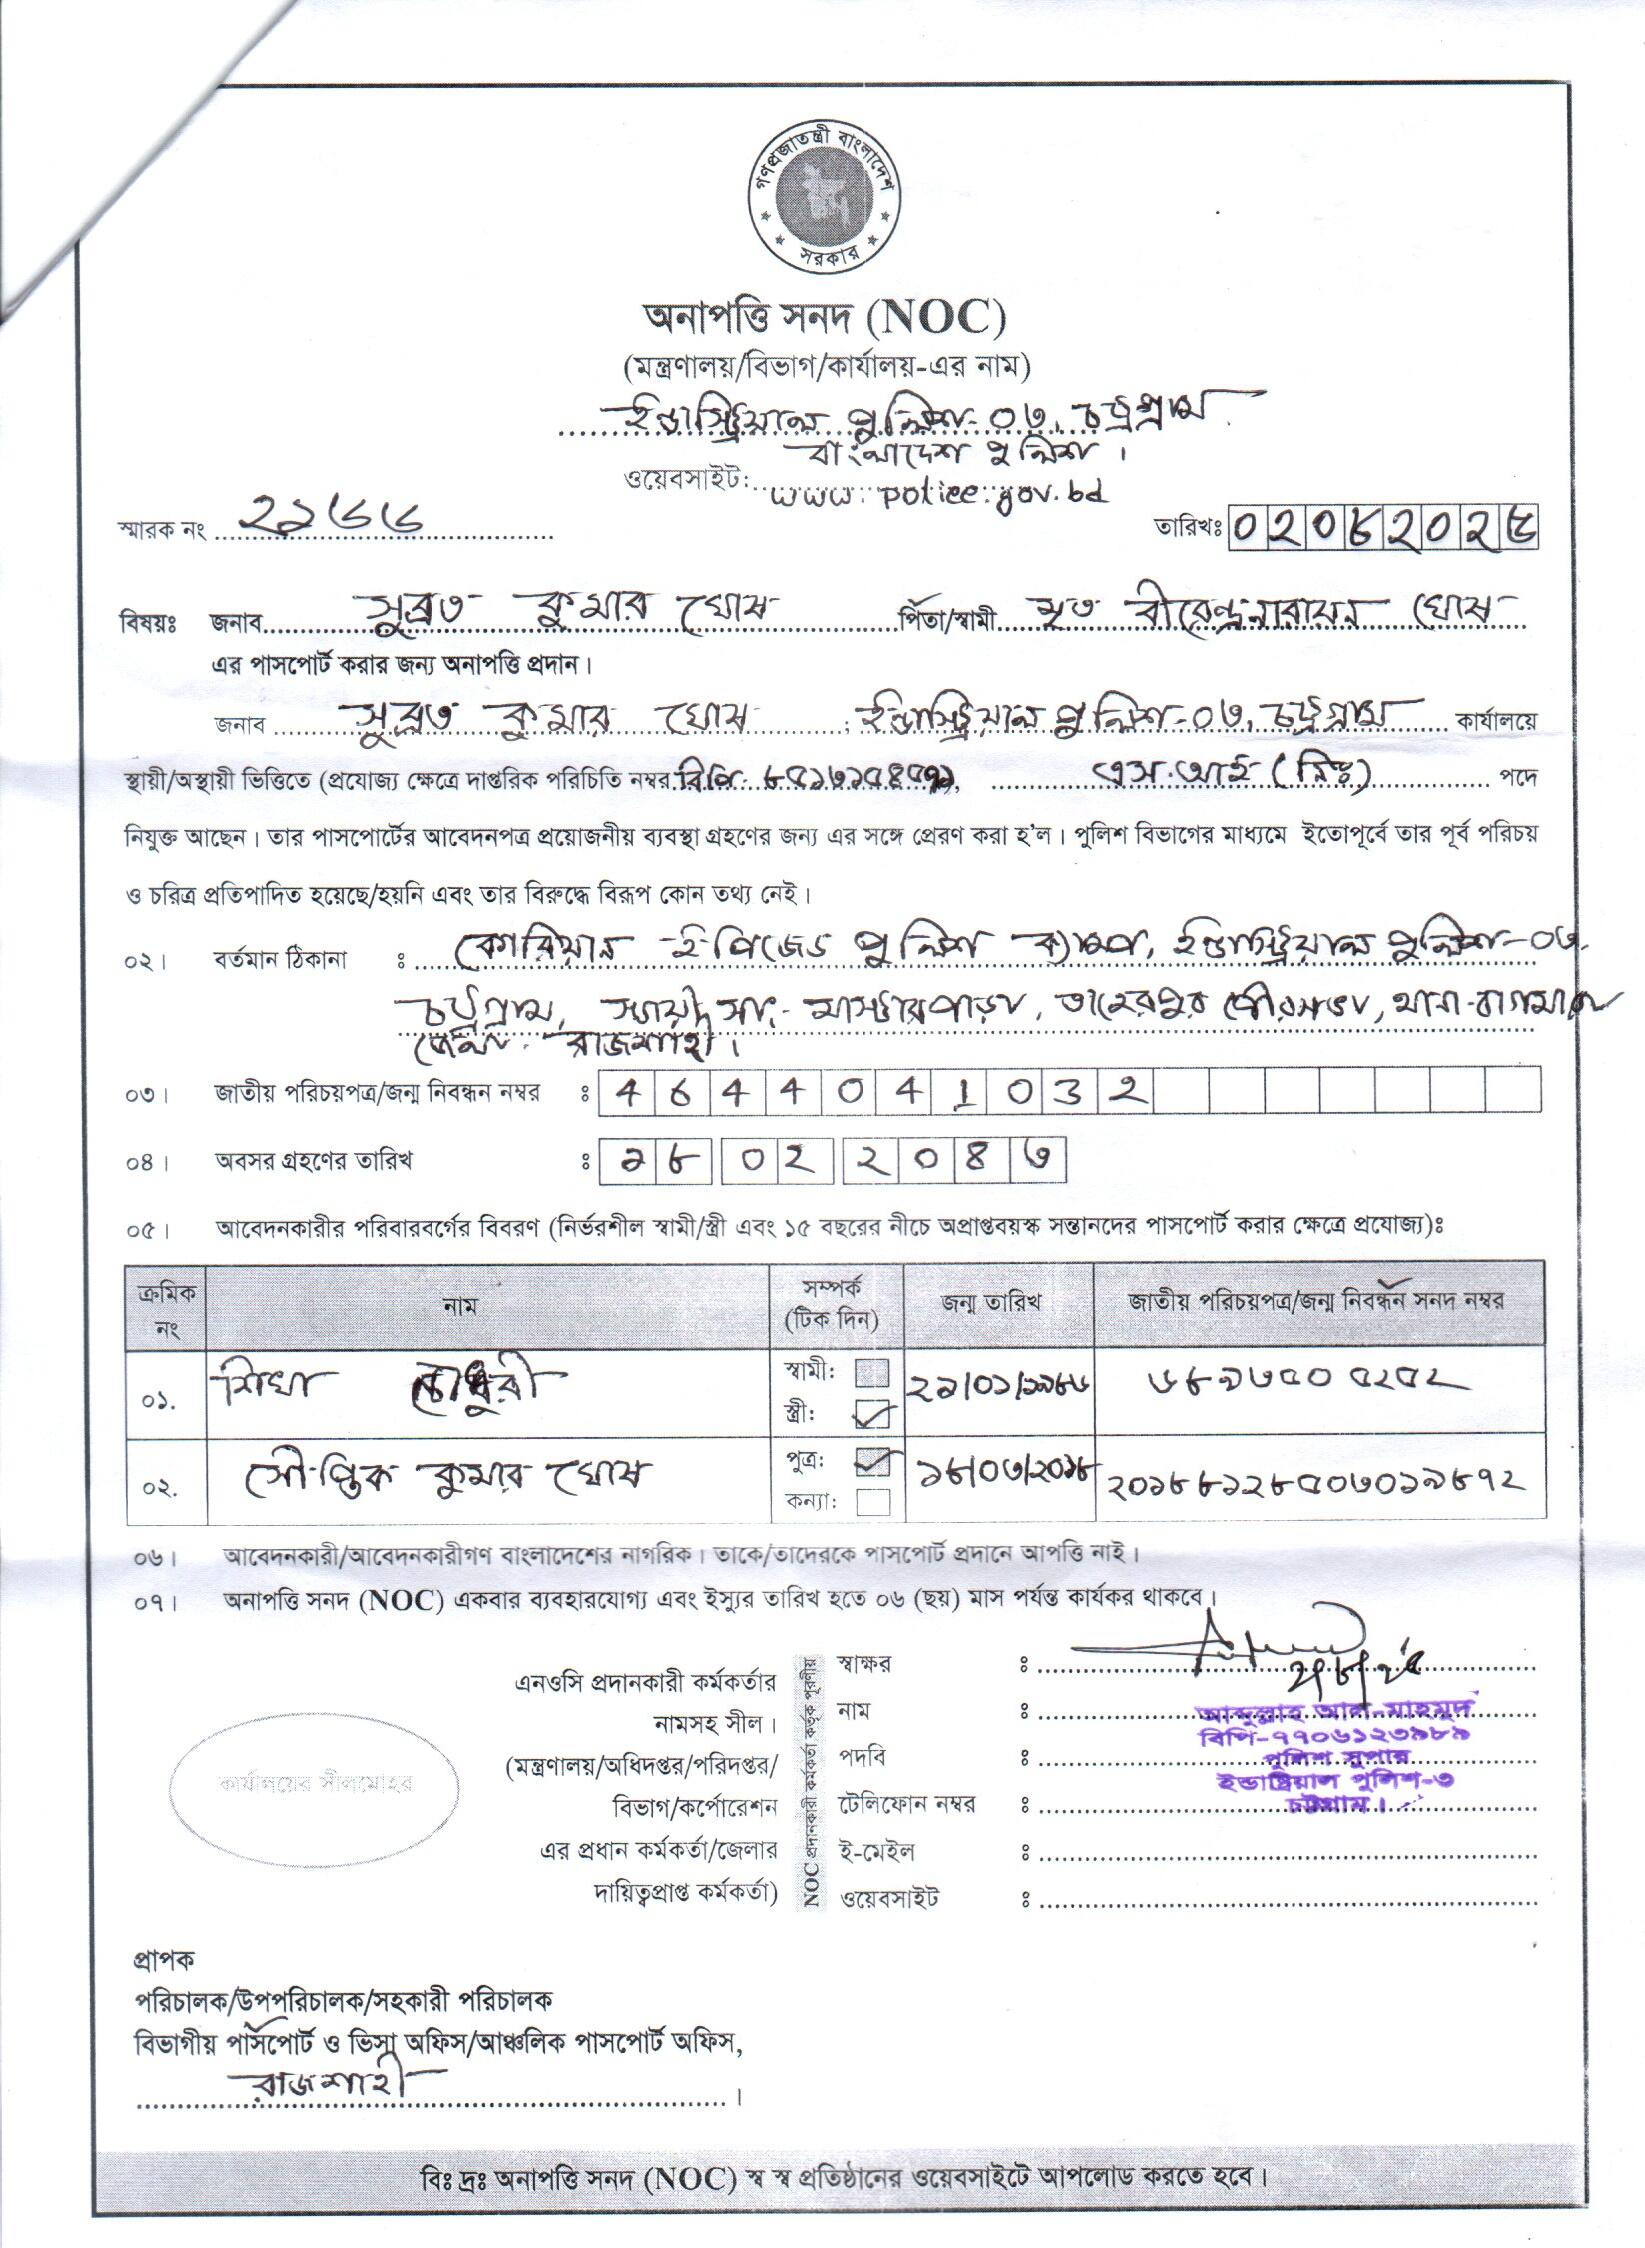 গণপ্রজাতন্ত্রী বাংলাদেশ
সরকার
অনাপত্তি সনদ (NOC)
(মন্ত্রণালয়/বিভাগ/কার্যালয়-এর নাম)
ইন্ডাস্ট্রিয়াল পুলিশ-০৩, চট্টগ্রাম
বাংলাদেশ পুলিশ।
ওয়েবসাইট: www.police.gov.bd
স্মারক নং ২১৬৬ তারিখঃ ০২০৮২০২৫
বিষয়ঃ জনাব সুব্রত কুমার ঘোষ পিতা/স্বামী মৃত বীরেন্দ্রনারায়ন ঘোষ
এর পাসপোর্ট করার জন্য অনাপত্তি প্রদান।
জনাব সুব্রত কুমার ঘোষ, ইন্ডাস্ট্রিয়াল পুলিশ-০৩, চট্টগ্রাম কার্যালয়ে
স্থায়ী/অস্থায়ী ভিত্তিতে (প্রযোজ্য ক্ষেত্রে দাপ্তরিক পরিচিতি নম্বর বিপি- এস.আই (নিঃ) পদে
নিযুক্ত আছেন। তার পাসপোর্টের আবেদনপত্র প্রয়োজনীয় ব্যবস্থা গ্রহণের জন্য এর সঙ্গে প্রেরণ করা হ'ল। পুলিশ বিভাগের মাধ্যমে ইতোপূর্বে তার পূর্ব পরিচয়
ও চরিত্র প্রতিপাদিত হয়েছে/হয়নি এবং তার বিরুদ্ধে বিরূপ কোন তথ্য নেই।
০২। বর্তমান ঠিকানা ঃ কোরিয়ান ইপিজেড পুলিশ ক্যাম্প, ইন্ডাস্ট্রিয়াল পুলিশ-০৩,
চট্টগ্রাম, স্থায়ী সাং- মাস্টারপাড়া, তাহেরপুর পৌরসভা, থানা-বাগমারা
জেলা- রাজশাহী।
০৩। জাতীয় পরিচয়পত্র/জন্ম নিবন্ধন নম্বর ঃ 4644041032
০৪। অবসর গ্রহণের তারিখ ঃ ১৮ ০২ ২০৪৩
০৫। আবেদনকারীর পরিবারবর্গের বিবরণ (নির্ভরশীল স্বামী/স্ত্রী এবং ১৫ বছরের নীচে অপ্রাপ্তবয়স্ক সন্তানদের পাসপোর্ট করার ক্ষেত্রে প্রযোজ্য)ঃ
ক্রমিক নং নাম সম্পর্ক (টিক দিন) জন্ম তারিখ জাতীয় পরিচয়পত্র/জন্ম নিবন্ধন সনদ নম্বর
০১. শিখা চৌধুরী স্বামী: স্ত্রী: ✓ ২১/০১/১৯৮৬ ৬৮৯৩৫০৫২৫২
০২. সৌপ্তিক কুমার ঘোষ পুত্র: ✓ কন্যা: ১৮/০৩/২০১৮
০৬। আবেদনকারী/আবেদনকারীগণ বাংলাদেশের নাগরিক। তাকে/তাদেরকে পাসপোর্ট প্রদানে আপত্তি নাই।
০৭। অনাপত্তি সনদ (NOC) একবার ব্যবহারযোগ্য এবং ইস্যুর তারিখ হতে ০৬ (ছয়) মাস পর্যন্ত কার্যকর থাকবে।
কার্যালয়ের সীলমোহর
এনওসি প্রদানকারী কর্মকর্তার
নামসহ সীল।
(মন্ত্রণালয়/অধিদপ্তর/পরিদপ্তর/
বিভাগ/কর্পোরেশন
এর প্রধান কর্মকর্তা/জেলার
দায়িত্বপ্রাপ্ত কর্মকর্তা)
NOC প্রদানকারী কর্মকর্তা কর্তৃক পূরণীয়
স্বাক্ষর ঃ ২/৮/২৫
নাম ঃ আব্দুল্লাহ আল-মাহমুদ
বিপি-৭৭০৬১২৩৯৮৯
পদবি ঃ পুলিশ সুপার
ইন্ডাষ্ট্রিয়াল পুলিশ-৩
টেলিফোন নম্বর ঃ চট্টগ্রাম।
ই-মেইল ঃ
ওয়েবসাইট ঃ
প্রাপক
পরিচালক/উপপরিচালক/সহকারী পরিচালক
বিভাগীয় পাসপোর্ট ও ভিসা অফিস/আঞ্চলিক পাসপোর্ট অফিস,
রাজশাহী।
বিঃ দ্রঃ অনাপত্তি সনদ (NOC) স্ব স্ব প্রতিষ্ঠানের ওয়েবসাইটে আপলোড করতে হবে।